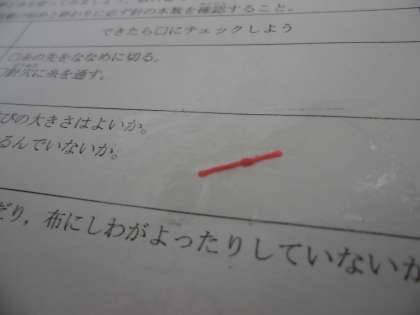 終わりに必ず針の本数を確認すること。
できたら□にチェックしよう
□糸の先をななめに切る。
□針穴に糸を通す。
びの大きさはよいか。
るんでいないか。
どり，布にしわがよったりしていないか